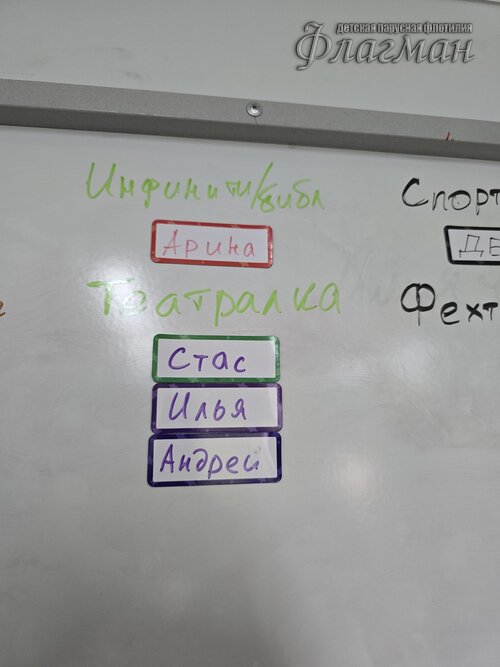 детская парусная флотилия
Флагман
Инфинити/библ
Арина
Театралка
Стас
Илья
Андрей
Спорт
ДЕ
Фехт